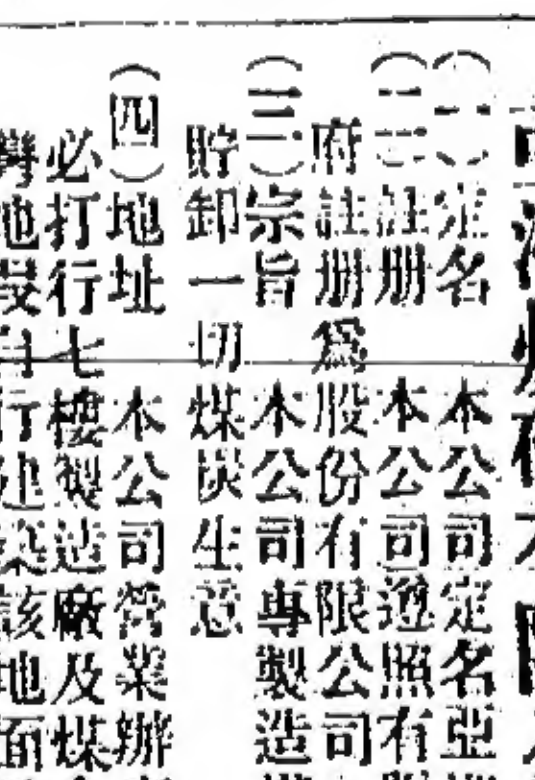 （一）定名　本公司定名亞
（二）註册　本公司遵照有
府註册爲股份有限公司
（三）宗旨　本公司專製造
貯卸一切煤炭生意
（四）地址　本公司營業辦
必打行七樓製造廠及煤
地設自行建築該地面